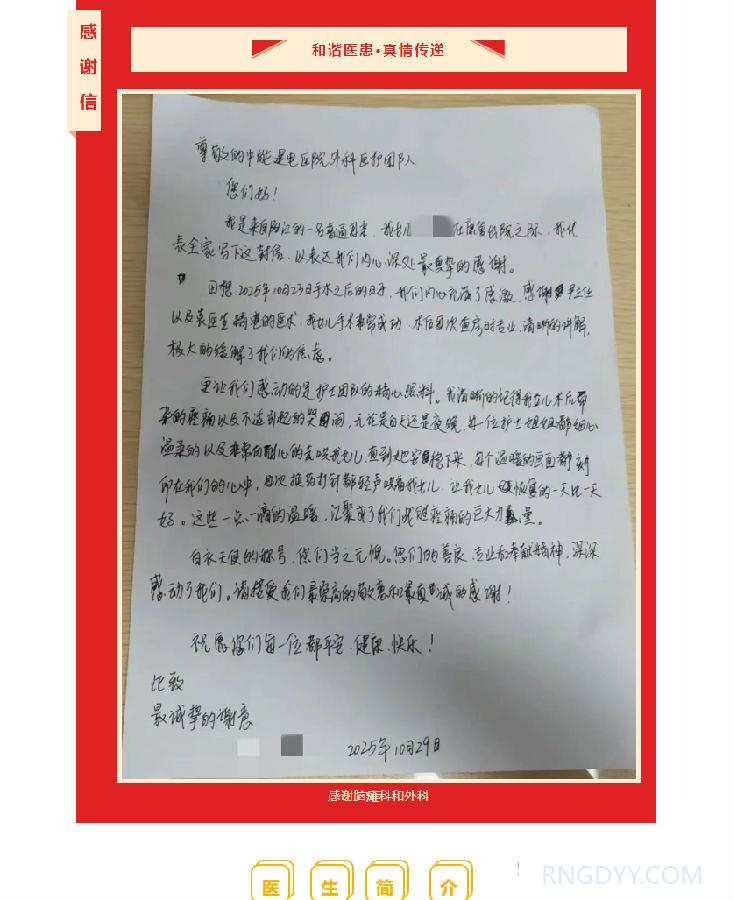 感谢信
和谐医患·真情传递
尊敬的中能建电医院外科医护团队
您们好！
我是来自阳江的一名普通母亲，我女儿 在离备线院之际，我代
表全家写下这封信，以表达我们内心深处最真挚的感谢。
回想2025年10月23日手术之后的日子，我们内心充满了感激，感谢尹主任
以及袁医生精湛的医术，我女儿手术非常成功，术后每次查房时专业、清晰的讲解，
极大的缓解了我们的焦虑。
更让我们感动的是护士团队的精心照料。我清晰的记得我女儿术后带
来的疼痛以及不适引起的哭闹，无论是白天还是夜晚，每一位护士姐姐都细心
温柔的以及非常有耐心的去哄我女儿，直到她安稳下来，每个温暖的画面都刻
印在我们的心中，每次换药打针都轻声哄着我女儿，让我女儿恢复的一天比一天
好。这些一点一滴的温暖，汇聚成了我们战胜疼痛的巨大力量。
白衣天使的称号，您们当之无愧。您们的善良、专业和奉献精神，深深
感动了我们。请接受我们最崇高的敬意和最真诚的感谢！
祝愿你们每一位都平安、健康、快乐！
比致
最诚挚的谢意
2025年10月29日
感谢脑瘫科和外科
医生简介
RNGDYY.COM